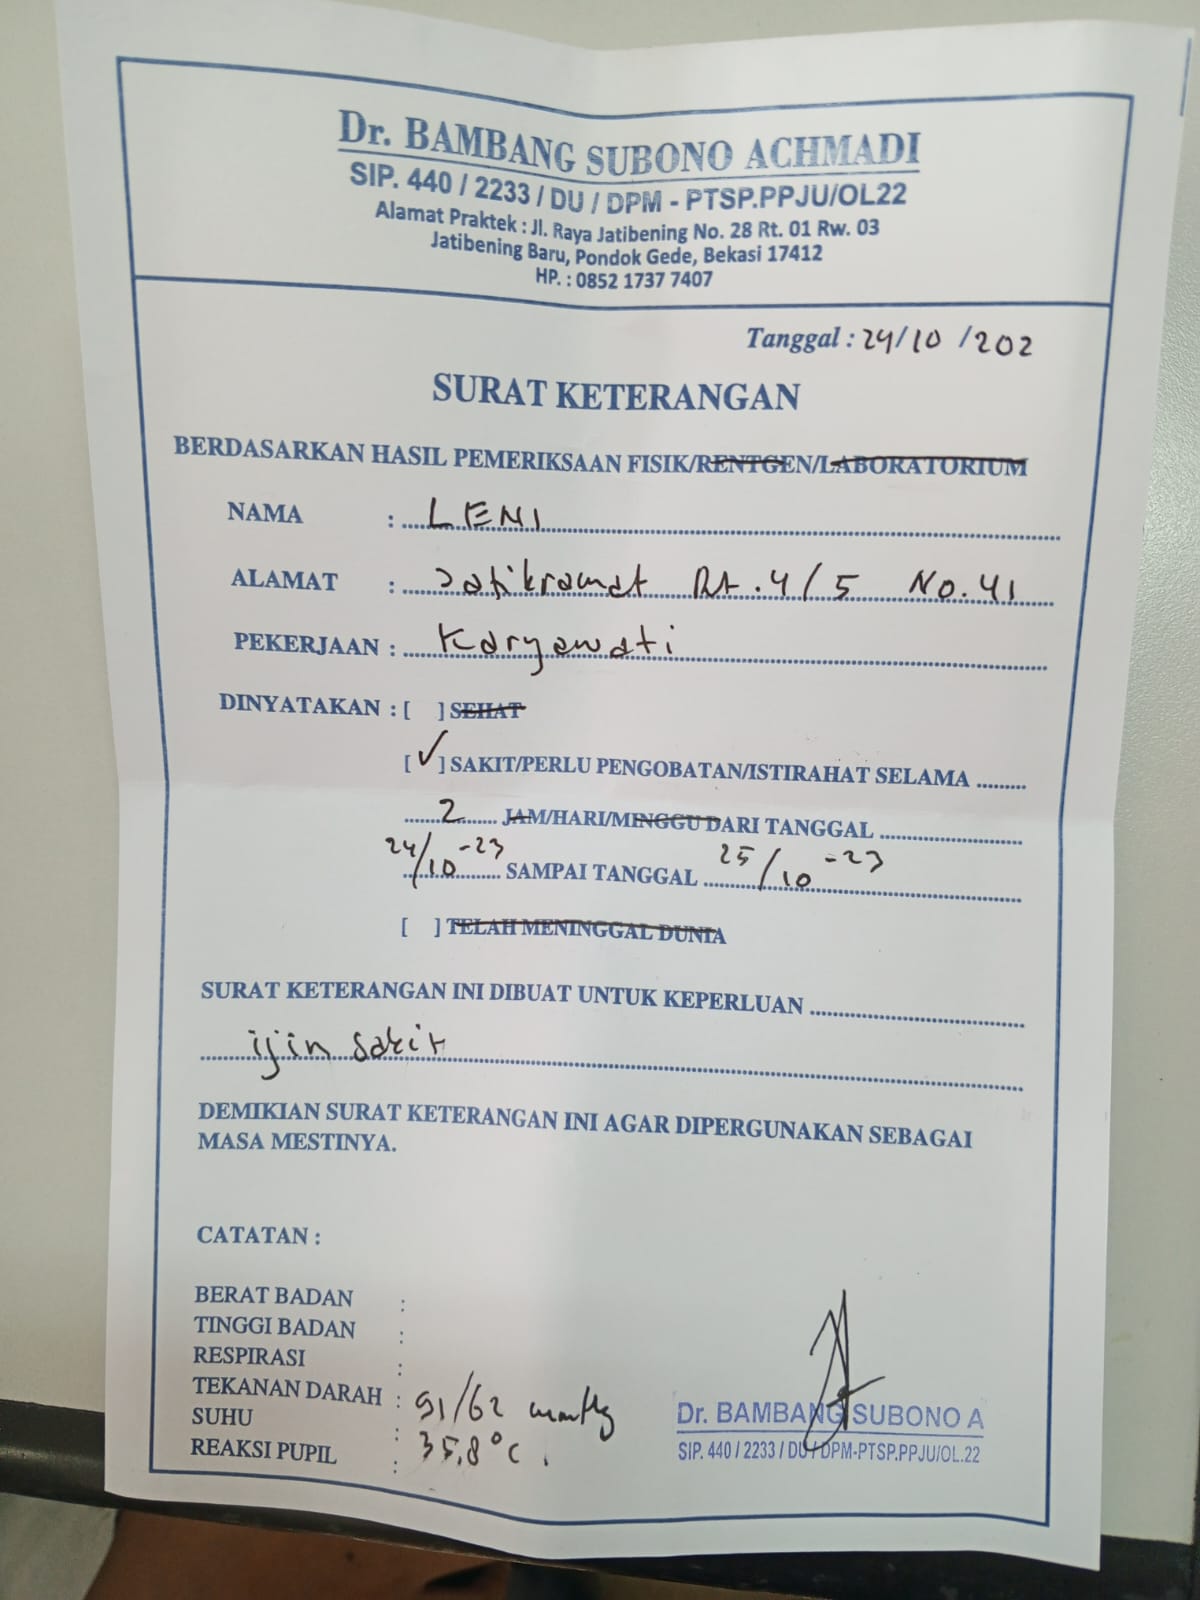 Dr. BAMBANG SUBONO ACHMADI
SIP. 440 / 2233 / DU / DPM - PTSP.PPJU/OL22
Alamat Praktek : Jl. Raya Jatibening No. 28 Rt. 01 Rw. 03
Jatibening Baru, Pondok Gede, Bekasi 17412
HP. : 0852 1737 7407
Tanggal : 24/10 /202
SURAT KETERANGAN
BERDASARKAN HASIL PEMERIKSAAN FISIK/RENTGEN/LABORATORIUM
NAMA : LENI
ALAMAT : Jatikramat Rt. 4/5 No. 41
PEKERJAAN : Karyawati
DINYATAKAN : [ ] SEHAT
[✓] SAKIT/PERLU PENGOBATAN/ISTIRAHAT SELAMA ........
2 JAM/HARI/MINGGU DARI TANGGAL ........
24/10 -23 SAMPAI TANGGAL 25/10 -23
[ ] TELAH MENINGGAL DUNIA
SURAT KETERANGAN INI DIBUAT UNTUK KEPERLUAN ........
ijin sakit
DEMIKIAN SURAT KETERANGAN INI AGAR DIPERGUNAKAN SEBAGAI
MASA MESTINYA.
CATATAN :
BERAT BADAN :
TINGGI BADAN :
RESPIRASI :
TEKANAN DARAH : 91/62 mmHg
SUHU : 35,8°C.
REAKSI PUPIL :
Dr. BAMBANG SUBONO A
SIP. 440 / 2233 / DU / DPM-PTSP.PPJU/OL.22